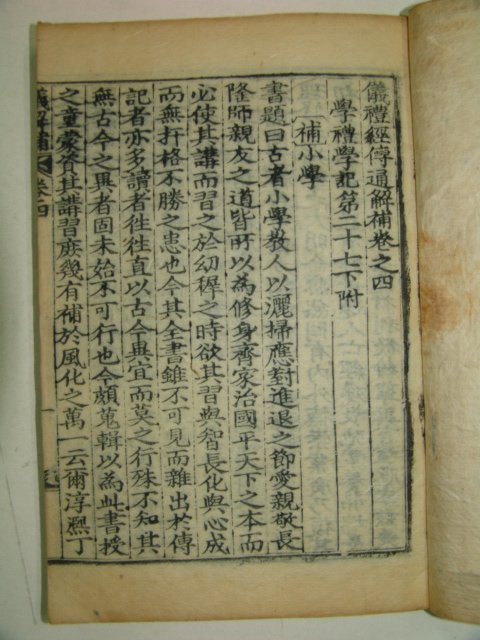 儀禮經傳通解補卷之四
學禮學記第二十七下附
補小學
書題曰古者小學教人以灑掃應對進退之節愛親敬長
隆師親友之道皆所以為修身齊家治國平天下之本而
必使其講而習之於幼穉之時欲其習與智長化與心成
而無扞格不勝之患也今其全書雖不可見而雜出於傳
記者亦多讀者往往直以古今異宜而莫之行殊不知其
無古今之異者固未始不可行也今頗蒐輯以為此書授
之童蒙資其講習庶幾有補於風化之萬一云爾淳熙丁